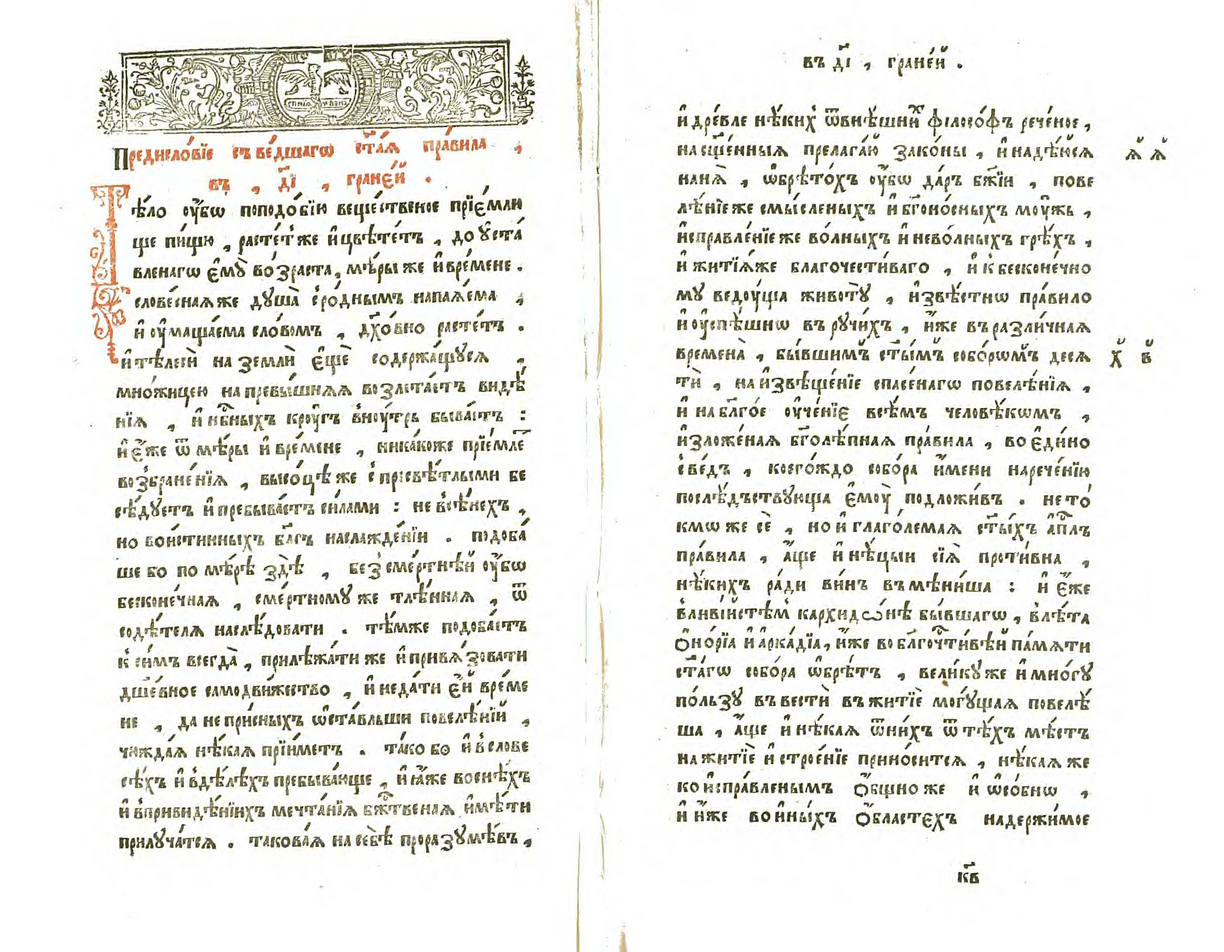 Предисло́вїе съведшагѡ ст҃а́ѧ пра́вила ,
въ , д҃і , гране́й .
Тѣ́ло ᲂу҆́бѡ поподо́бїю веще́ственое прїе́млю
ще пи́щю , расте́тже и҆цвѣте́тъ , до ᲂу҆ста́
вленагѡ є҆мꙋ̀ во́зраста , мѣ́ры же и҆вре́мене .
слове́снаяже дꙋша̀ сро́днымъ напаѧ́ема ,
и҆ ᲂу҆маща́ема сло́вомъ , дх҃о́вно расте́тъ .
и҆тѣлесѝ на землѝ є҆щѐ содержа́щꙋсѧ ,
мно́жицею напревы́шнѧѧ возлета́етъ видѣ́
нїѧ , и҆ нб҃ныхъ крꙋ́гъ внꙋ́трь быва́етъ :
и҆ є҆́же ѿ мѣ́ры и҆вре́мене , ника́коже прїе́мле
возбране́нїѧ , высо́цѣ же с пресвѣ́тлыми бе
сѣ́дꙋетъ и҆пребыва́етъ си́лами : не всѣ́нехъ ,
но вои́стинныхъ бл҃гъ наслажде́нїи . подоба́
ше бо по мѣ́рѣ здѣ̀ , безсме́ртнѣй ᲂу҆́бѡ
безконе́чная , сме́ртномꙋ же тлѣ́нная , ѿ
содѣ́телѧ наслѣ́довати . тѣ́мже подоба́етъ
к си́мъ всегда̀ , прилѣжа́ти же и҆привѧ́зовати
дш҃е́вное самодви́жество , и҆неда́ти є҆́й вре́ме
не , да не при́сныхъ ѡ҆ста́вльши повелѣ́нїй ,
чꙋжда́ѧ нѣ́кая прїи́метъ . та́ко бо и҆ в слове
сѣ́хъ и҆ вдѣ́лѣхъ пребыва́юще , и҆ ꙗ҆́же восиѣ́хъ
и҆ впривидѣ́нїихъ мечта́нїѧ бж҃твеная и҆мѣ́ти
прилꙋча́тсѧ . такова́ѧ на се́бѣ проразꙋмѣ́въ ,
въ д҃і , гране́й .
и҆ дре́вле нѣ́киⷯ ѿвнѣ́шниⷯ филосо́фъ рече́ное ,
насщ҃е́нныя прелага́ю зако́ны , и҆надѣ́юсѧ
наня̀ , ѡ҆брѣто́хъ ᲂу҆́бѡ да́ръ бж҃їи , пове
лѣ́нїеже смы́сленыхъ и҆ бг҃оно́сныхъ мꙋ́жь ,
и҆справле́нїеже во́лныхъ и҆нево́лныхъ грѣ́хъ ,
и҆ житїѧ́же благочести́ваго , и҆ к бесконе́чно
мꙋ ведꙋ́ща животꙋ̀ , и҆звѣ́стнѡ пра́вило
и҆ ᲂу҆спѣ́шнѡ врꙋчи́хъ , и҆́же въ разли́чная
времена̀ , бы́вшимъ ст҃ы́мъ собо́рѡмъ деся
тѝ , на и҆звѣще́нїе спасе́нагѡ повелѣ́нїѧ ,
и҆ на бл҃го́е ᲂу҆че́нїе всѣ́мъ человѣ́кѡмъ ,
и҆зложе́ная бг҃олѣ́пная пра́вила , во є҆ди́но
све́дъ , коего́ждо собо́ра и҆́мени нарече́нїю
послѣ́дъствꙋюща є҆мꙋ̀ подложи́въ . не то́
кмѡ же сѐ , но и҆ глаго́лемая ст҃ы́хъ ап҃лъ
пра́вила , а҆́ще и҆ нѣ́цыи сїѧ̀ проти́вна ,
нѣ́кихъ ра́ди ви́нъ вмѣни́ша : и҆ є҆́же
вливі́йстѣм кархидѡ́нѣ бы́вшагѡ , влѣ́та
ѻ҆но́рїа и҆ а҆рка́дїа , и҆́же во бл҃гочⷭ҇ти́вѣй па́мѧти
ст҃а́гѡ собо́ра ѡ҆брѣ́тъ , вели́кꙋ же и҆ мно́гꙋ
по́льзꙋ въвестѝ въ житїѐ могꙋ́щая повелѣ́
ша , а҆́ще и҆ нѣ́кая ѿни́хъ ѿ тѣ́хъ мѣ́стъ
на житїѐ и҆ строе́нїе прино́ситсѧ , нѣ́кая же
ко и҆спра́вленымъ ѻ҆́бщно же и҆ ѡ҆со́бнѡ ,
и҆ и҆́же во и҆ны́хъ ѻ҆́бластехъ надержи́мое
к҃в